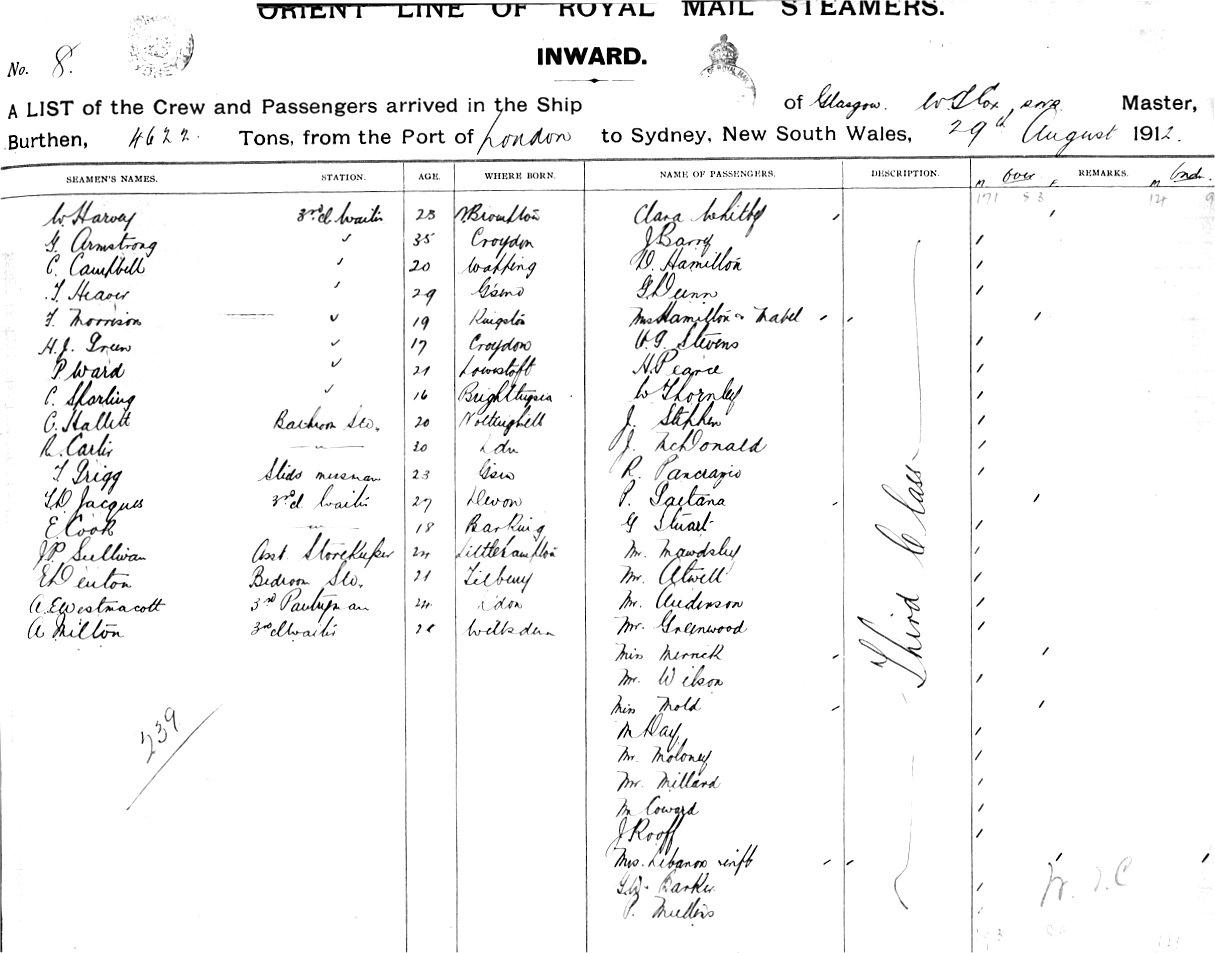 ORIENT LINE OF ROYAL MAIL STEAMERS.
INWARD.
No. 8.
A LIST of the Crew and Passengers arrived in the Ship of Glasgow. Master,
Burthen, 4622. Tons, from the Port of London to Sydney, New South Wales, 29th August 1912.
SEAMEN'S NAMES. STATION. AGE. WHERE BORN. NAME OF PASSENGERS. DESCRIPTION. M. Over F. REMARKS. M Und.
171 83 124 9
W Harvey 3rd Waiter 23 Clara Whitby
G. Armstrong 35 Croydon J Barry
C. Campbell 20 Wapping D. Hamilton
T. Heaver 29 G Dunn
T. Morrison 19 Kingston Mrs Hamilton & Mabel
H.J. Green 17 Croydon Stevens
P Ward 21 Lowestoft H. Pearce
C. Sparling 16 W Thornley
C. Hallett 20 J. Stephen
R. Carter 30 Ldn J. McDonald
T Grigg 23 R.
T.D. Jacques 3rd Waiter 27 Devon P. Gaetana
E. Cook 18 Barking G Stuart
J.P. Sullivan Asst. Storekeeper 24 Littlehampton Mr. Mawdsley
E Denton Bedroom Std. 21 Tilbury Mr. Atwell
A.E Westmacott 3rd Pantryman 24 Mr. Anderson
A Milton 3rd Waiter Willesden Mr. Greenwood
Miss Merrick
Mr. Wilson
Miss Mold
M Day
Mr. Moloney
Mr. Millard
M Coward
J Rooff
Mrs. Lebanon & inft
Barker
P. Mullins
Third Class
239